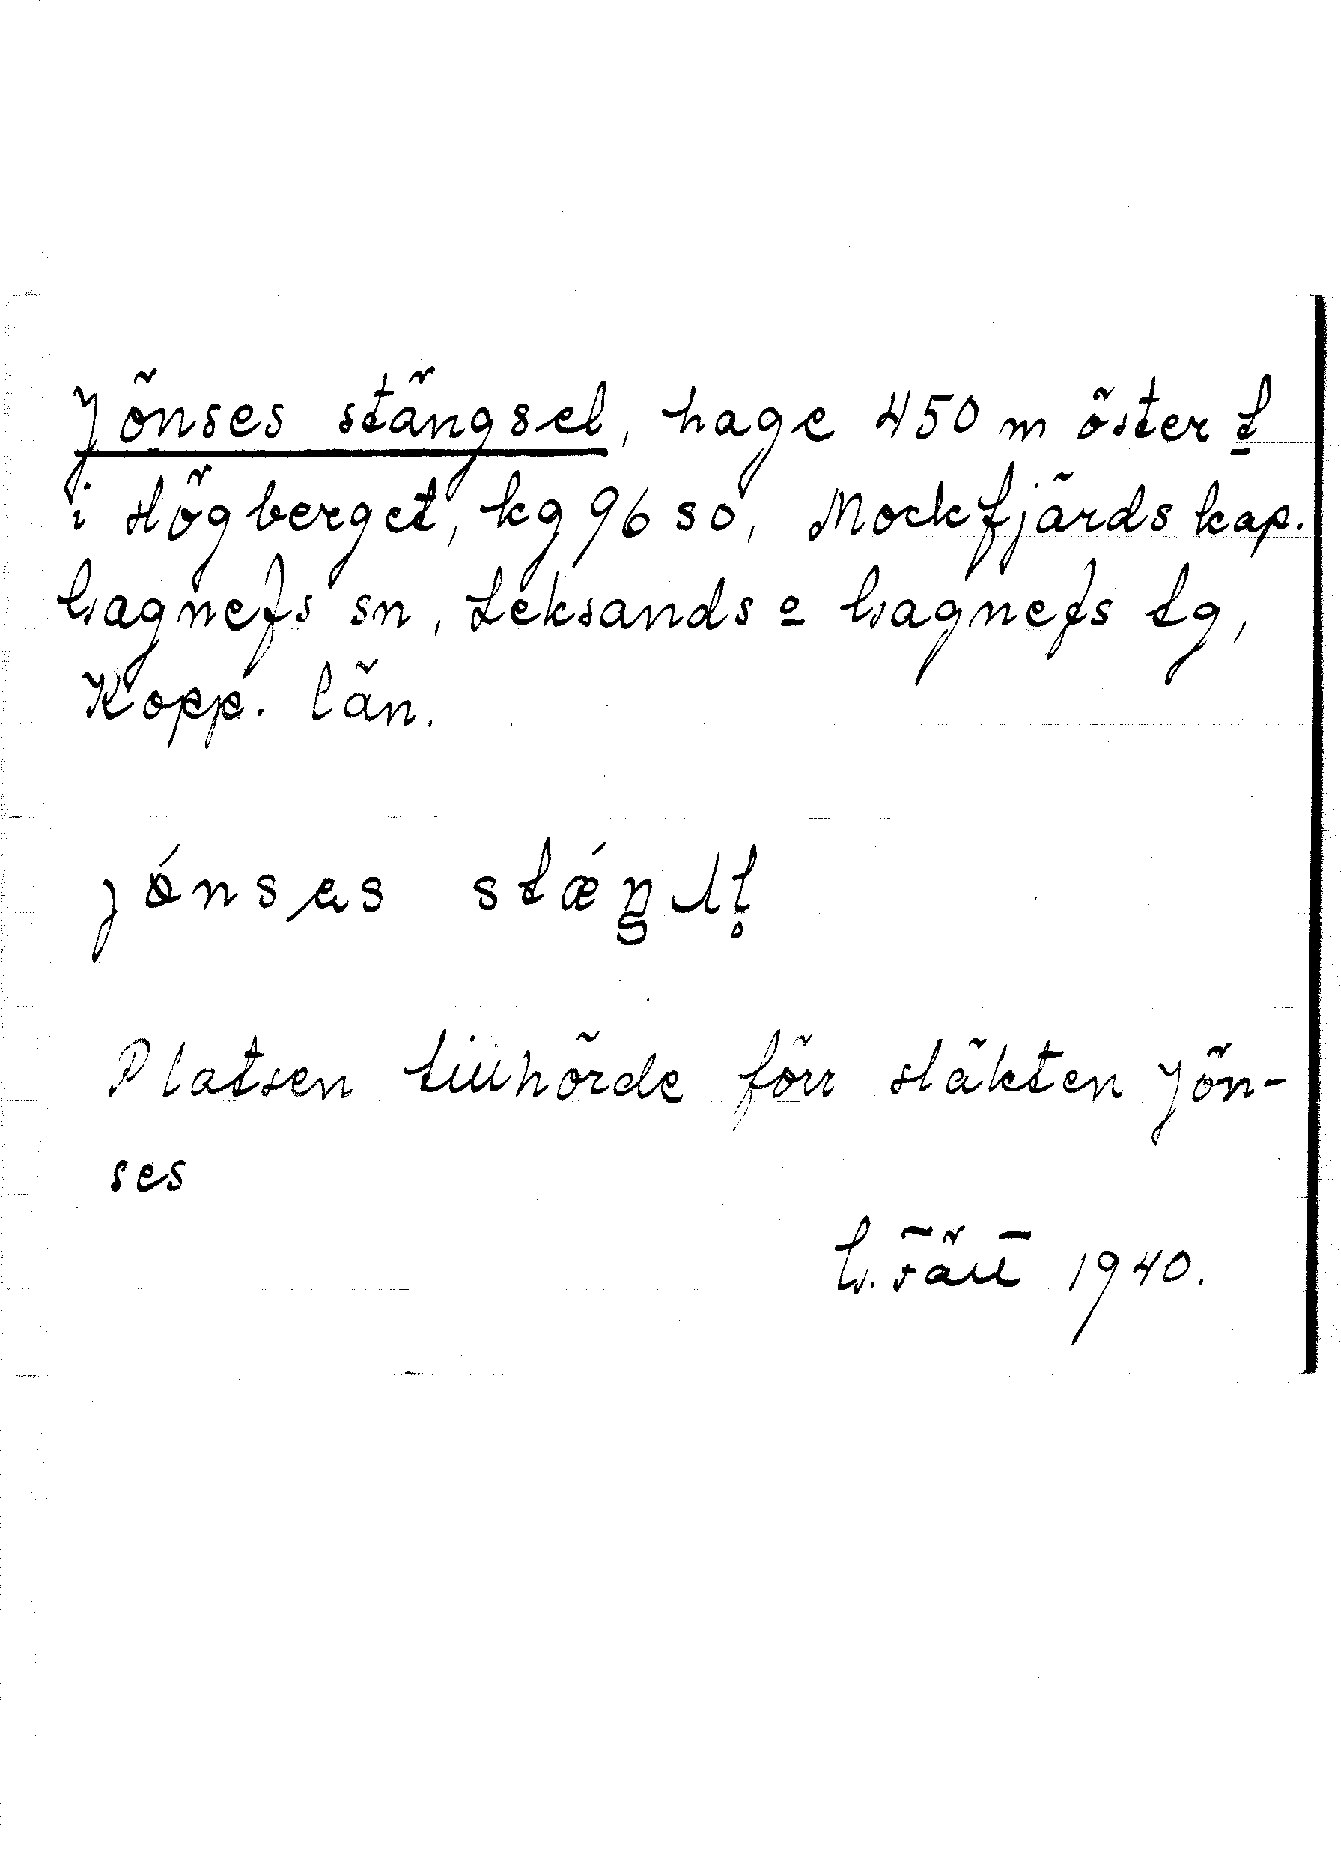 Jönses stängsel, hage 450 m öster t
i Högberget, kg 96 so, Mockfjärds kap.
Gagnefs sn, Leksands o Gagnefs tg,
Kopp. län.
jǿnses
Platsen tillhörde förr släkten Jön-
ses
G. Fält 1940.